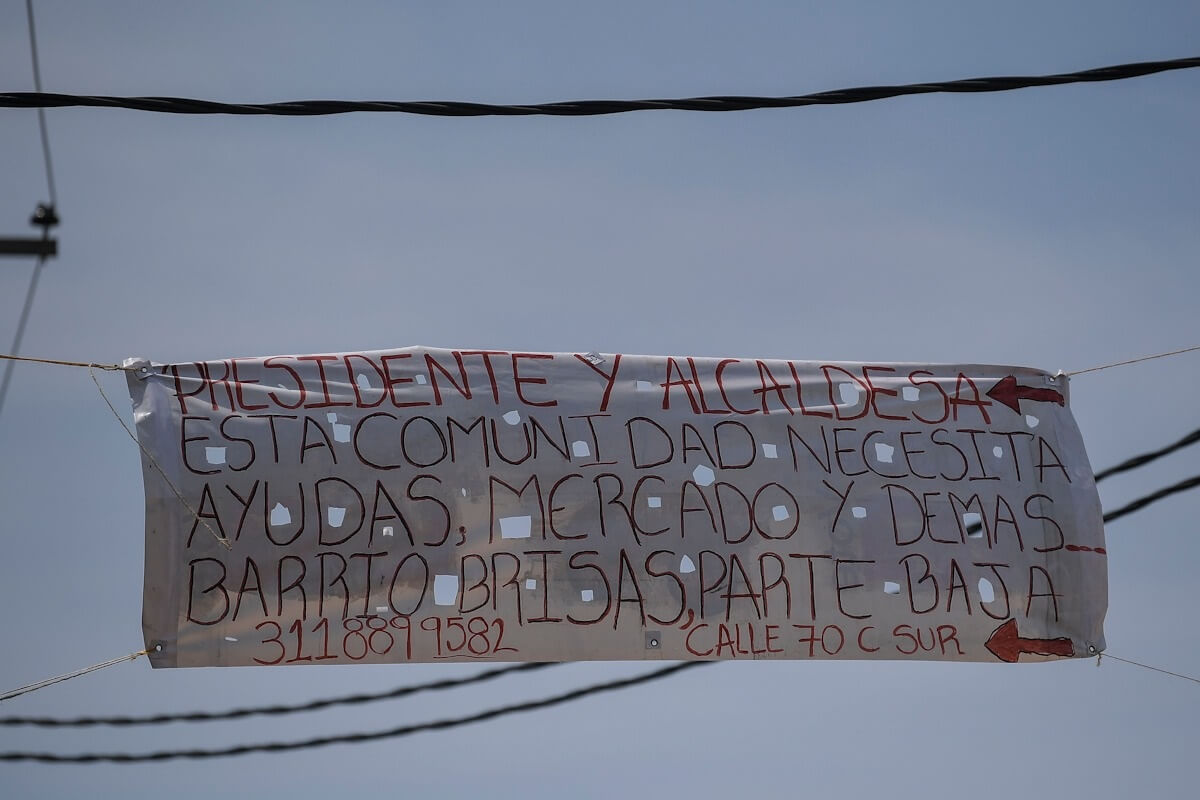 PRESIDENTE Y ALCALDESA
ESTA COMUNIDAD NECESITA
AYUDAS, MERCADO Y DEMAS_
BARRIO BRISAS, PARTE BAJA
311 889 9582 CALLE 70 C SUR